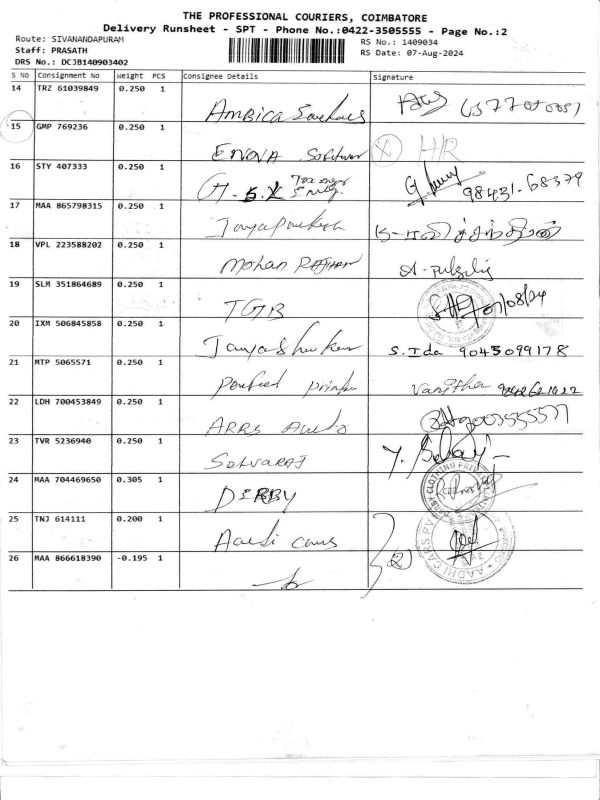 THE PROFESSIONAL COURIERS, COIMBATORE
Delivery Runsheet - SPT - Phone No.:0422-3505555 - Page No.:2
Route: SIVANANDAPURAM
RS No.: 1409034
Staff: PRASATH
RS Date: 07-Aug-2024
DRS No.: DCJB140903402
S NO Consignment No Weight PCS Consignee Details Signature
14 TRZ 61039849 0.250 1
AMBICA
15 GMP 769236 0.250 1
ENOVA Software HR
16 STY 407333 0.250 1
98431-68379
17 MAA 865798315 0.250 1
Jayaprakash
18 VPL 223588202 0.250 1
Mohan
19 SLM 351864689 0.250 1
TGB 07/08/24
20 IXM 506845858 0.250 1
Jayashankar S. Ida 9043099178
21 MTP 5065571 0.250 1
Perfect Vanitha
22 LDH 700453849 0.250 1
ARRS
23 TVR 5236940 0.250 1
SELVARAJ
24 MAA 704469650 0.305 1
DERBY
25 TNJ 614111 0.200 1
Aadi cars
26 MAA 866618390 -0.195 1
2
AADHI CARS